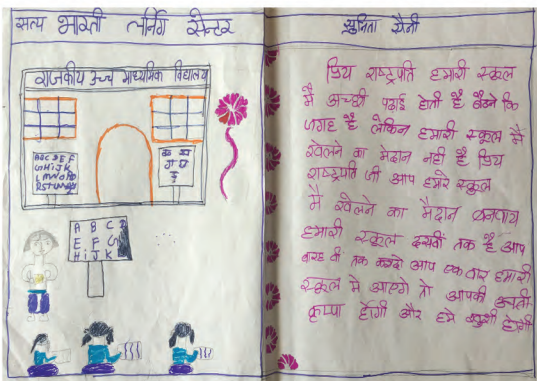 सत्य भारती लर्निंग सेन्टर
राजकीय उच्च माध्यमिक विद्यालय
ABCDEF
GHIJK
LMNOPQ
क ख
ग घ
ङ
A B C D
E F G
H i J K
सुनिता सैनी
प्रिय राष्ट्रपति हमारी स्कूल
में अच्छी पढ़ाई होती है बैठने कि
जगह है लेकिन हमारी स्कूल में
खेलने का मेदान नही है प्रिय
राष्ट्रपति जी आप हमरे स्कूल
में खेलने का मैदान बनवाए
हमारी स्कूल दसवीं तक है आप
बारह वी तक करदो आप एक बार हमारी
स्कूल मे आएगे तो आपकी अती
कृप्पा होंगी और हमे खुशी होगी